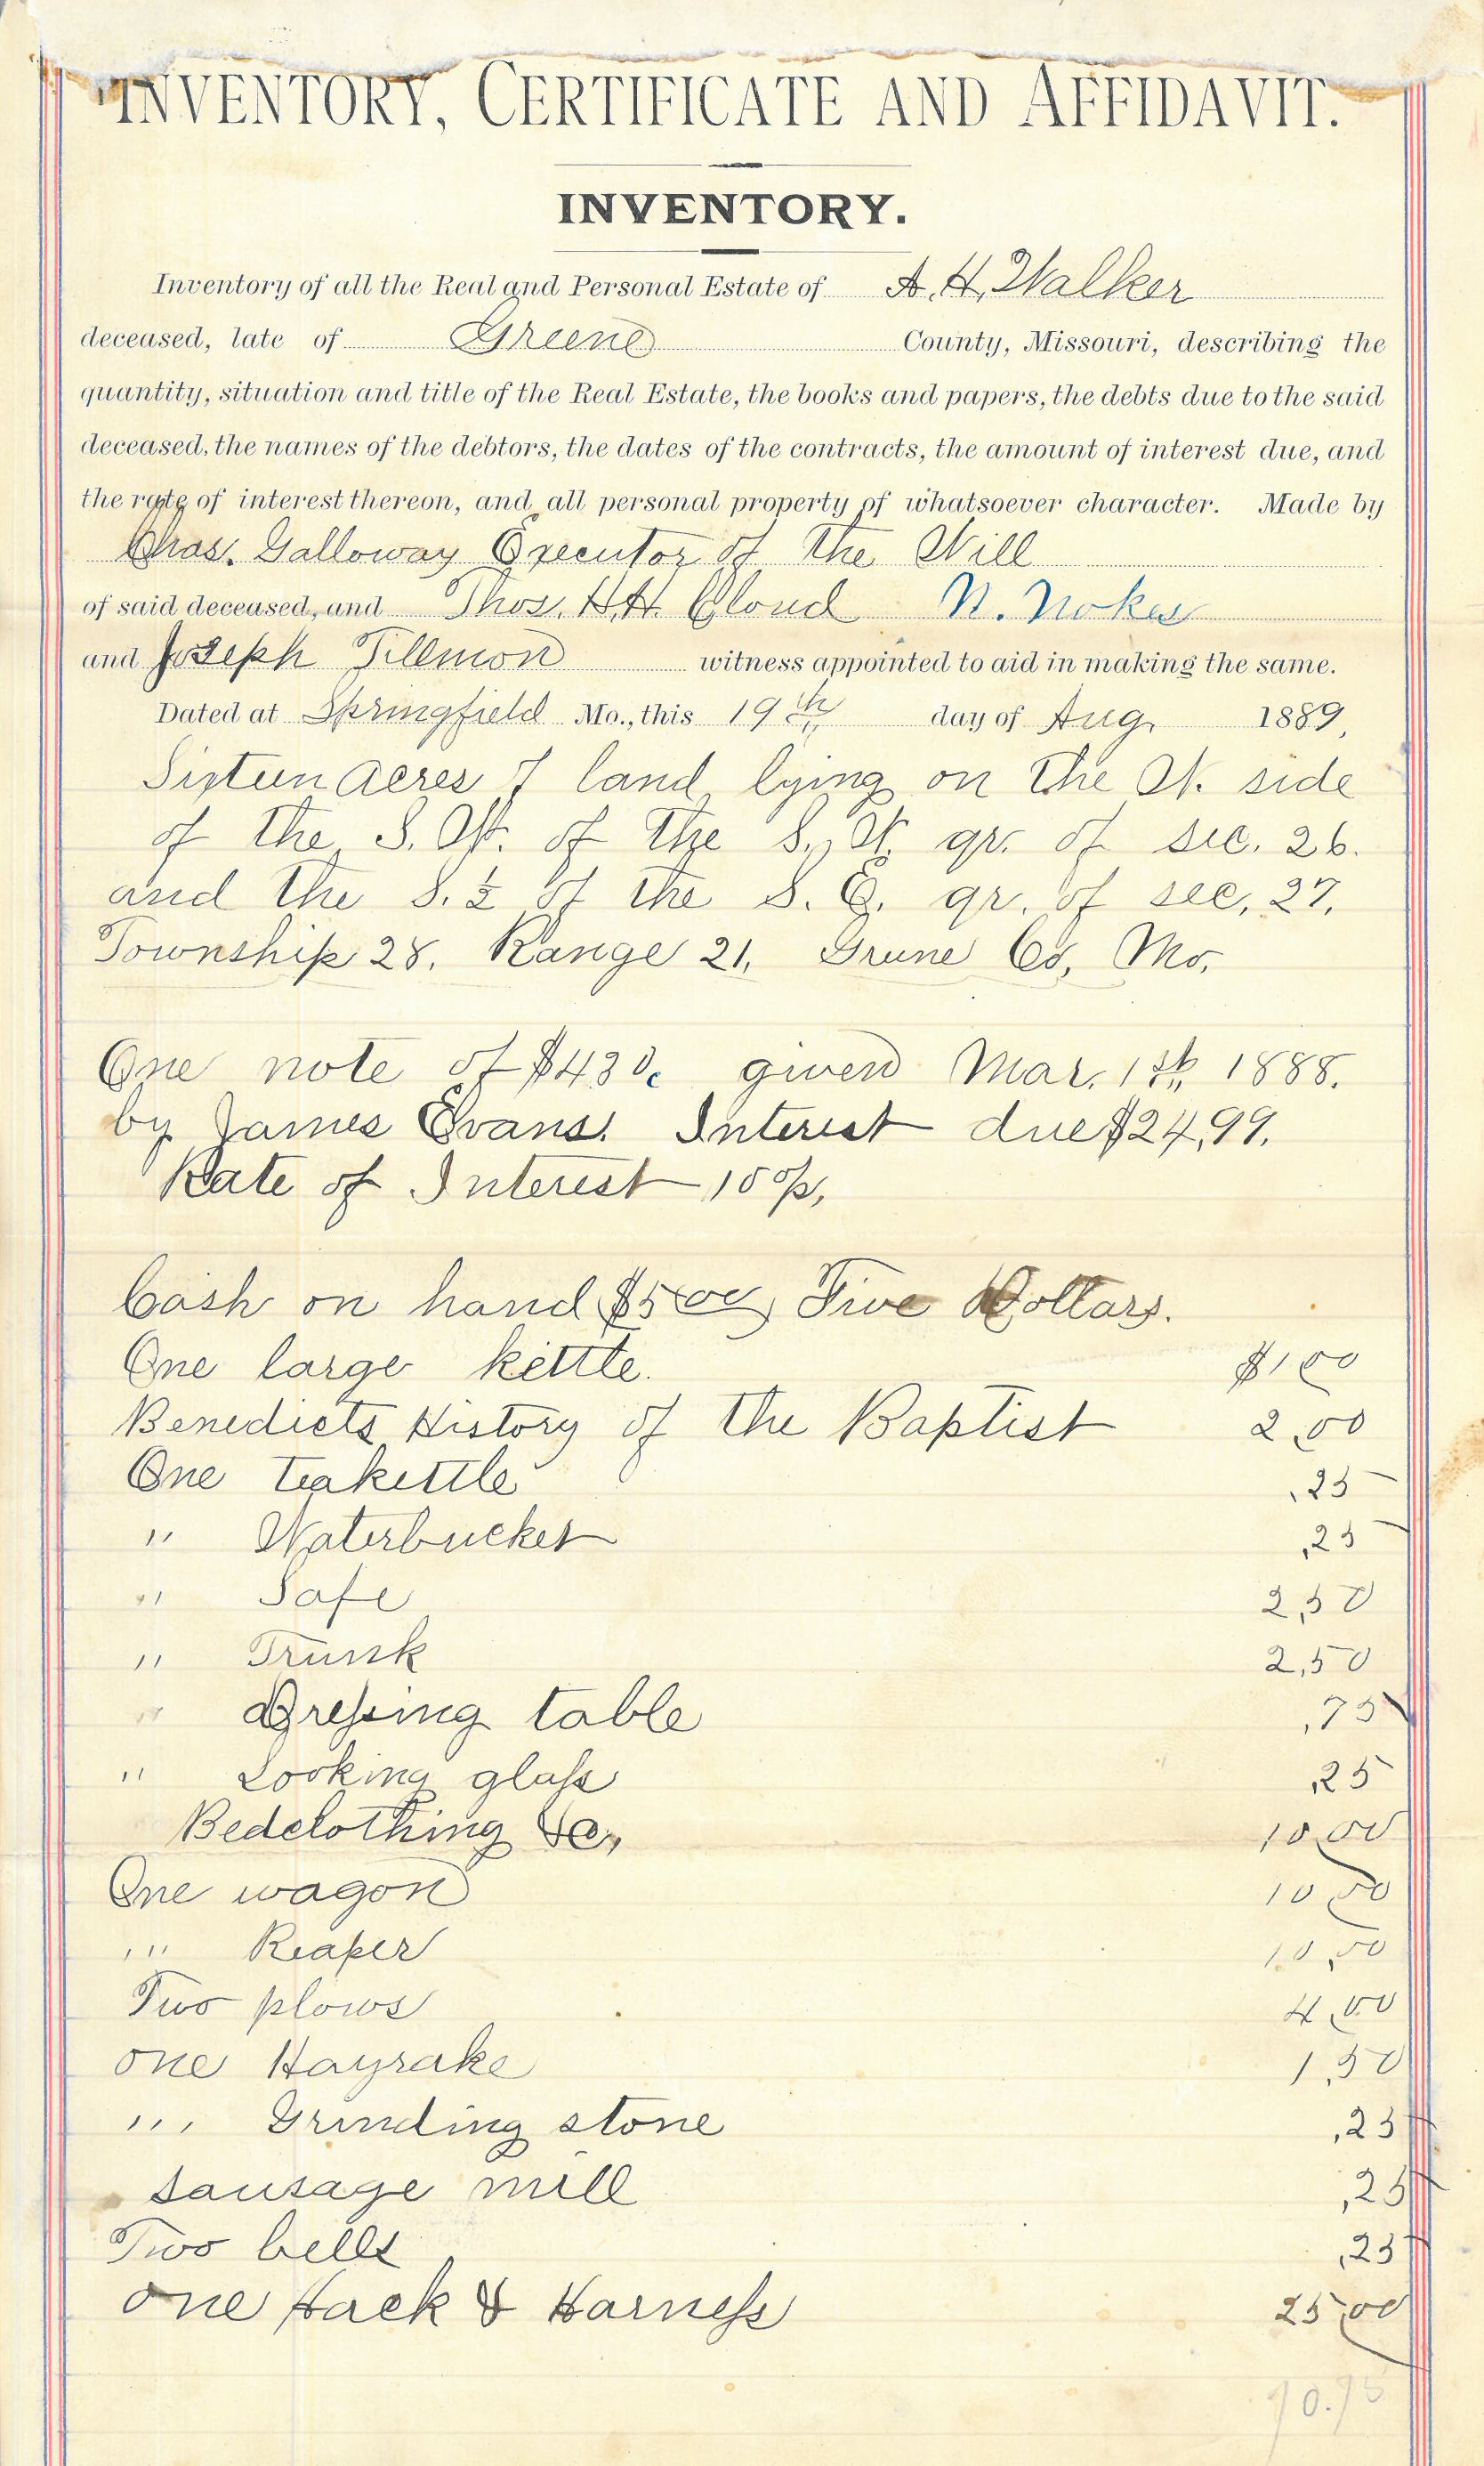 INVENTORY, CERTIFICATE AND AFFIDAVIT.
INVENTORY.
Inventory of all the Real and Personal Estate of A. H. Walker
deceased, late of Greene County, Missouri, describing the
quantity, situation and title of the Real Estate, the books and papers, the debts due to the said
deceased, the names of the debtors, the dates of the contracts, the amount of interest due, and
the rate of interest thereon, and all personal property of whatsoever character. Made by
Chas. Galloway Executor of the Will
of said deceased, and Thos. H.H. Cloud N. Nokes
and Joseph Tillmon witness appointed to aid in making the same.
Dated at Springfield Mo., this 19th day of Aug. 1889,
Sixteen acres of land lying on the W. side
of the S. W. of the S. W. qr. of sec. 26.
and the S. ½ of the S. E. qr. of sec. 27,
Township 28, Range 21, Greene Co, Mo,
One note of given Mar. 1st, 1888.
by James Evans. Interest due $24,99.
Rate of Interest 10%,
Cash on hand $5.00 Five Dollars.
One large kettle. $1.00
Benedicts History of the Baptist 2,00
One teakettle ,25
" Waterbucket ,25
" Safe 2,50
" Trunk 2,50
" Dressing table ,75
" Looking glass ,25
Bedclothing &c, 10,00
One wagon 10,00
" Reaper 10,00
Two plows 4,00
one Hayrake 1,50
" Grinding stone ,25
sausage mill ,25
Two bells ,25
one Hack & Harness 25,00
70.75